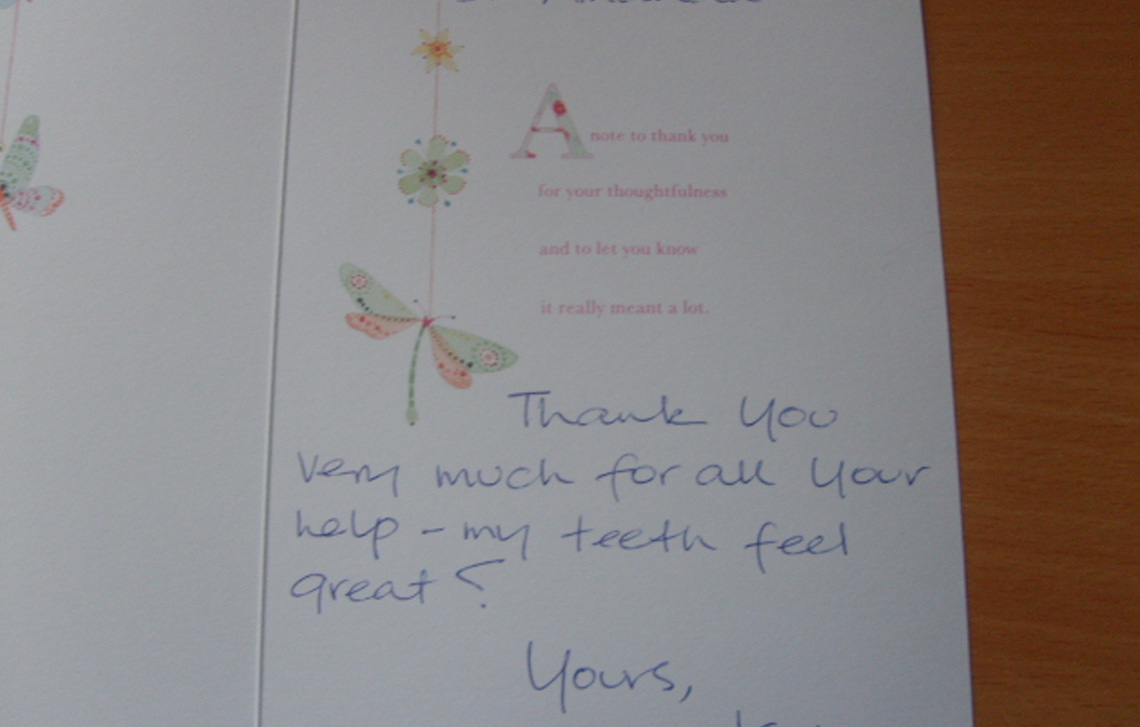 A note to thank you
for your thoughtfulness
and to let you know
it really meant a lot.
Thank you
very much for all your
help - my teeth feel
great!
Yours,